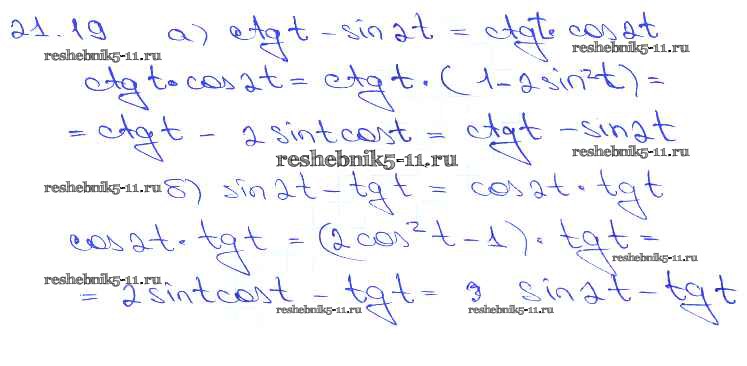 21.19 а) ctg t - sin 2t = ctg t · cos 2t
reshebnik5-11.ru reshebnik5-11.ru
ctg t · cos 2t = ctg t · (1 - 2 sin²t) =
= ctg t - 2 sin t cos t = ctg t - sin 2t
reshebnik5-11.ru reshebnik5-11.ru
reshebnik5-11.ru б) sin 2t - tg t = cos 2t · tg t
cos 2t · tg t = (2 cos² t - 1) · tg t =
reshebnik5-11.ru reshebnik5-11.ru
= 2 sin t cos t - tg t = sin 2t - tg t
reshebnik5-11.ru reshebnik5-11.ru
reshebnik5-11.ru